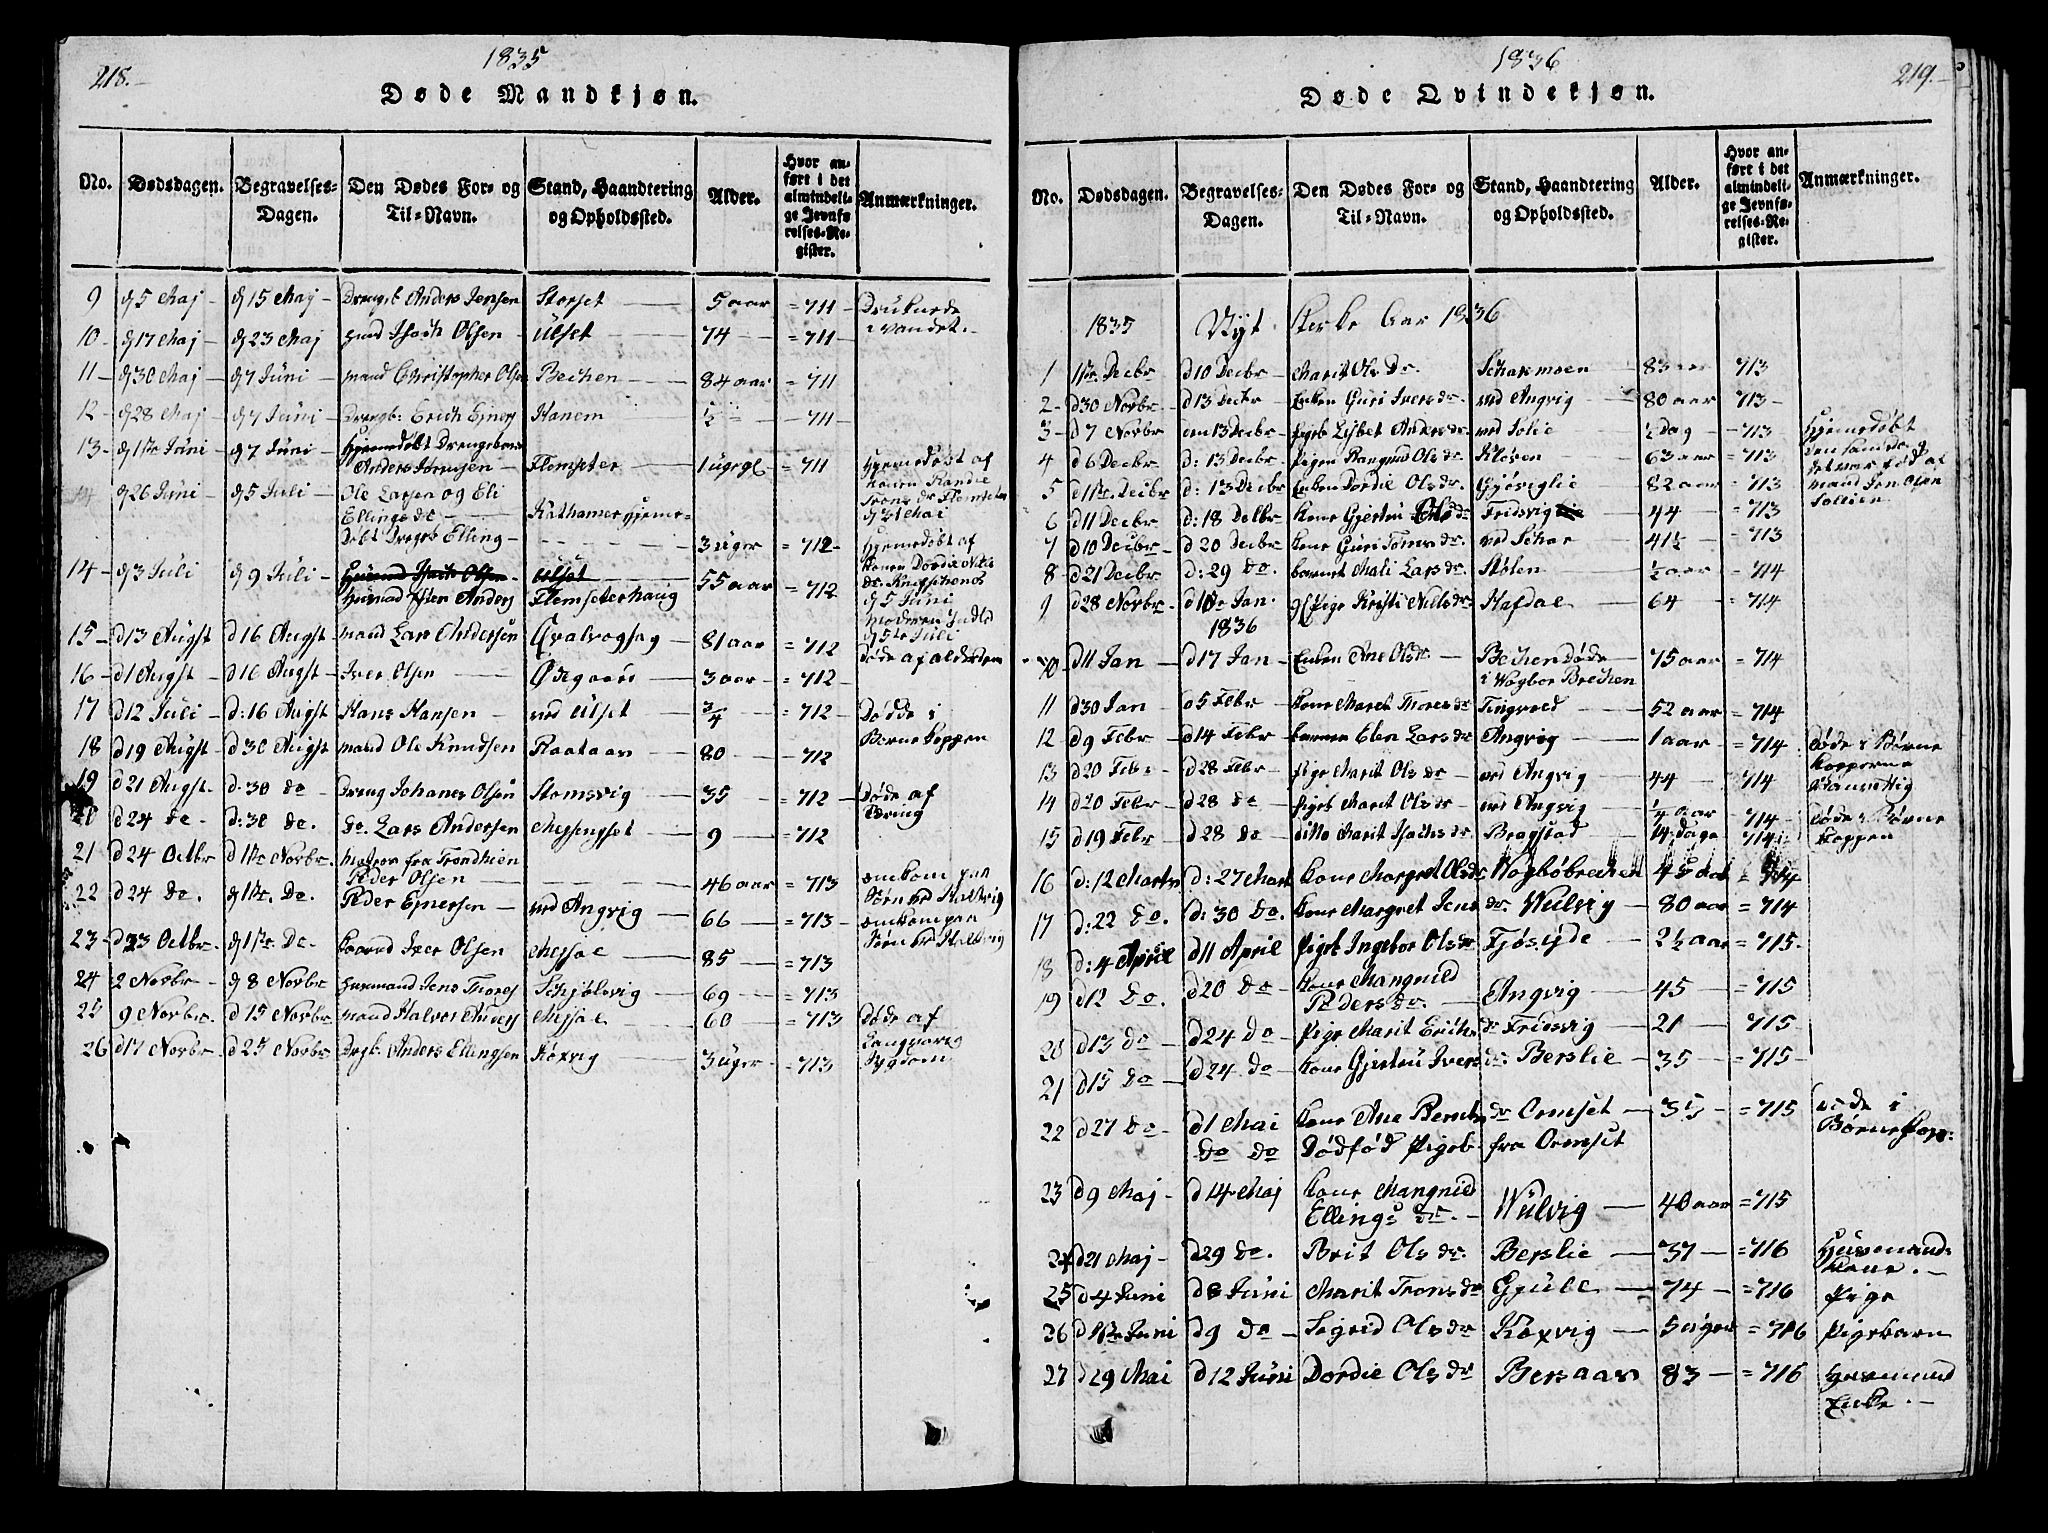 218.–
1835
Døde Mandkjøn.
No. Dødsdagen. Begravelses-Dagen. Den Dødes For- og Til-Navn. Stand, Haandtering og Opholdssted. Alder. Hvor anført i det almindelige Jevnførelses-Register. Anmærkninger.
9 – d 5 Maj – d 15 Maj – Drengb Anders Jensen Storset — 5 aar = 711 – Druknede i Vandet.
10 – d 17 Maj – d 23 Maj Isach Olsen – Ulset — 74 — = 711 –
11 – d 30 Maj – d 7 Juni – mand Christopher Olsen Bechen — 84 aar = 711
12 – d 28 Maj – d 7 Juni – Drengb: Erich Ejners Hanem ½ — – 711 –
13 – d 1ste Juni – d 7 Juni – Hjemmedøbt Drengebarn
Anders – Flemseter – 1 uge gl = 711 Hjemedøbt af
d 26 Juni – d 5 Juli – Ole Larsen og Eli
Ellings dr — hjeme-
Døbt Elling – 3 uger = 712 – Hjemedøbt af
14 – d 3 Juli – d 9 Juli – Isach Olsen – Ulset
Anders Flemseterhaug 55 aar = 712 d 5 Juni
15 – d 13 Augst d 16 Augst mand Lars Andersen 81 aar = 712 Døde af alderdom
16 – d 1 Augst – d 16 Augst – Iver Olsen — Ødegaard – 3 aar – = 712 –
17 d 12 Juli – d: 16 Augst Hans Hansen – ved Ulset – ¾ — = 712 – Dødde i
18 d 19 Augst – d 30 Augst mand Ole Knudsen Raataan — 80 — – 712 Børne koppen
19 d 21 Augst. d. 30 do – Dreng Johanes Olsen Stomsvig – 35 – = 712 – Døde af Tæring
20 d 24 de – d: 30 de. do. Lars Andersen Messingset – 9 — = 712
21 d 24 Octbr d 1ste Novbr. fra Trondhien
Peder Olsen — 46 aar = 713 omkom paa
22 d 24 do. d 1ste Do. Peder Ejnersen – ved Angvig – 66 — = 713 – omkom paa
23 – d 23 Octbr. d 1ste De – Iver Olsen – Messal — 85 — = 713
24 2 Novbr – d 8 Novbr Husmand Jens Thores Schjølsvig – 69 – = 713
25 9 Novbr. d 15 Novbr mand Halvor Anders Messal — 60 — = 713 Døde af
26 d 17 Novbr – d 25 Novbr Drgb. Anders Ellingsen Koxvig — 3 uger – = 713 Langvarig Sygdom
219.–
1836
Døde Qvindekjøn.
No. Dødsdagen. Begravelses-Dagen. Den Dødes For- og Til-Navn. Stand, Haandtering og Opholdssted. Alder. Hvor anført i det almindelige Jevnførelses-Register. Anmærkninger.
1835 Nyt Kirke Aar 1836
1 1ste Decbr d 10 Decbr – Marit Ols Dr. Scharmoen 83 aar 713
2 – d 30 Novbr – d 13 Decbr – Enken Guri Ivers dr. ved Angvig – 80 aar 713 –
3 – d 7 Novbr den 13 Decbr – Pigeb Lisbet Anders dr. ved Solie — ½ Dag – 713 Hjemedøbt
4 d 6 Decbr d: 13 Decbr – Pigen Rangnid Ols dr. 63 aar = 713
5 d 11te Decbr d: 13 Decbr Enken Dordie Ols dr. Gjøviglie – 82 aar = 713
6 d 11 Decbr d: 18 Decbr Kone Gjertru Ols dr Fridsvig 44 – = 713
7 d 10 Decbr – d 20 Decbr Kone Guri Toms dr. ved Schar – 41½ – = 713
8 d 21 Decbr d: 29 do. barnet Mali Lars dr. Stølen – ½ aar = 714
9 d 28 Novbr – Jan. 1836 gl Pige Kristi Nils dr. Hafdal – 64 – = 714
10 d 11 Jan – d 17 Jan – Enken Ane Ols dr. Bechen døde i Vogbø Brechen 75 aar = 714
11 d 30 Jan – d 5 Febr – Kone Maret Thores dr Tingvold – 52 aar = 714
12 d 9 Febr – d 14 Febr – Elen Lars dr Angvig — 1 aar – = 714 døde i Børne
13 d 20 Febr d 28 Febr – Pige Marit Ols dr – ved Angvig – 44 – = 714 kopperne
14 d 20 Febr d 28 de – Pigeb Marit Ols dr – ved Angvig – ¼ aar – 714 – døde i Børne
15 d 19 Febr d 28 do – ditto Marit Isachs dr. Bragstad – 14 dage 714 Koppen
16 d: 12 Marts d: 27 Mart Kone Margret Ols dr Vogbøbrechen 45 aar = 714
17 d: 22 do. d: 30 do. Kone Margret Jens dr. Wulvig – 80 aar = 714
18 d: 4 April d 11 April Pigeb Ingebor Ols dr 2½ aar = 715.
19 d 12 do. d 20 do – Kone Mangnild Peders dr. – Angvig – 45 – = 715
20 d 13 do – d 24 do – Pige Marit Erichs dr Fridsvig – 21 – – 715 –
21 d 15 do – d 24 do – Kone Gjertru Ivers dr. Berslie – 35 – = 715 –
22 d 27 do – d 1 Mai Kone Ane Bernts dr Ormset – 35 – = 715 døde i
do do Dødfød Pigeb. fra Ormset Børnekop:
23 d 9 Maj – d 14 Maj Kone Mangnild Ellings dr. – Wulvig – 40 aar = 715
24 d 21 Maj – d 29 do. Brit Ols dr. Berslie – 37 – = 716 Husmands Kone. –
25 d 4 Juni d 8 Juni Marit Trons dr Gjule – 74 – = 716 Pige
26 d 1ste Juni d 9 do – Segrid Ols dr Koxvig – 5 uger = 716 Pigebarn
27 d 29 Mai d 12 Juni Dordie Ols dr Bersaas 83 – = 716 Husmand Enke. –